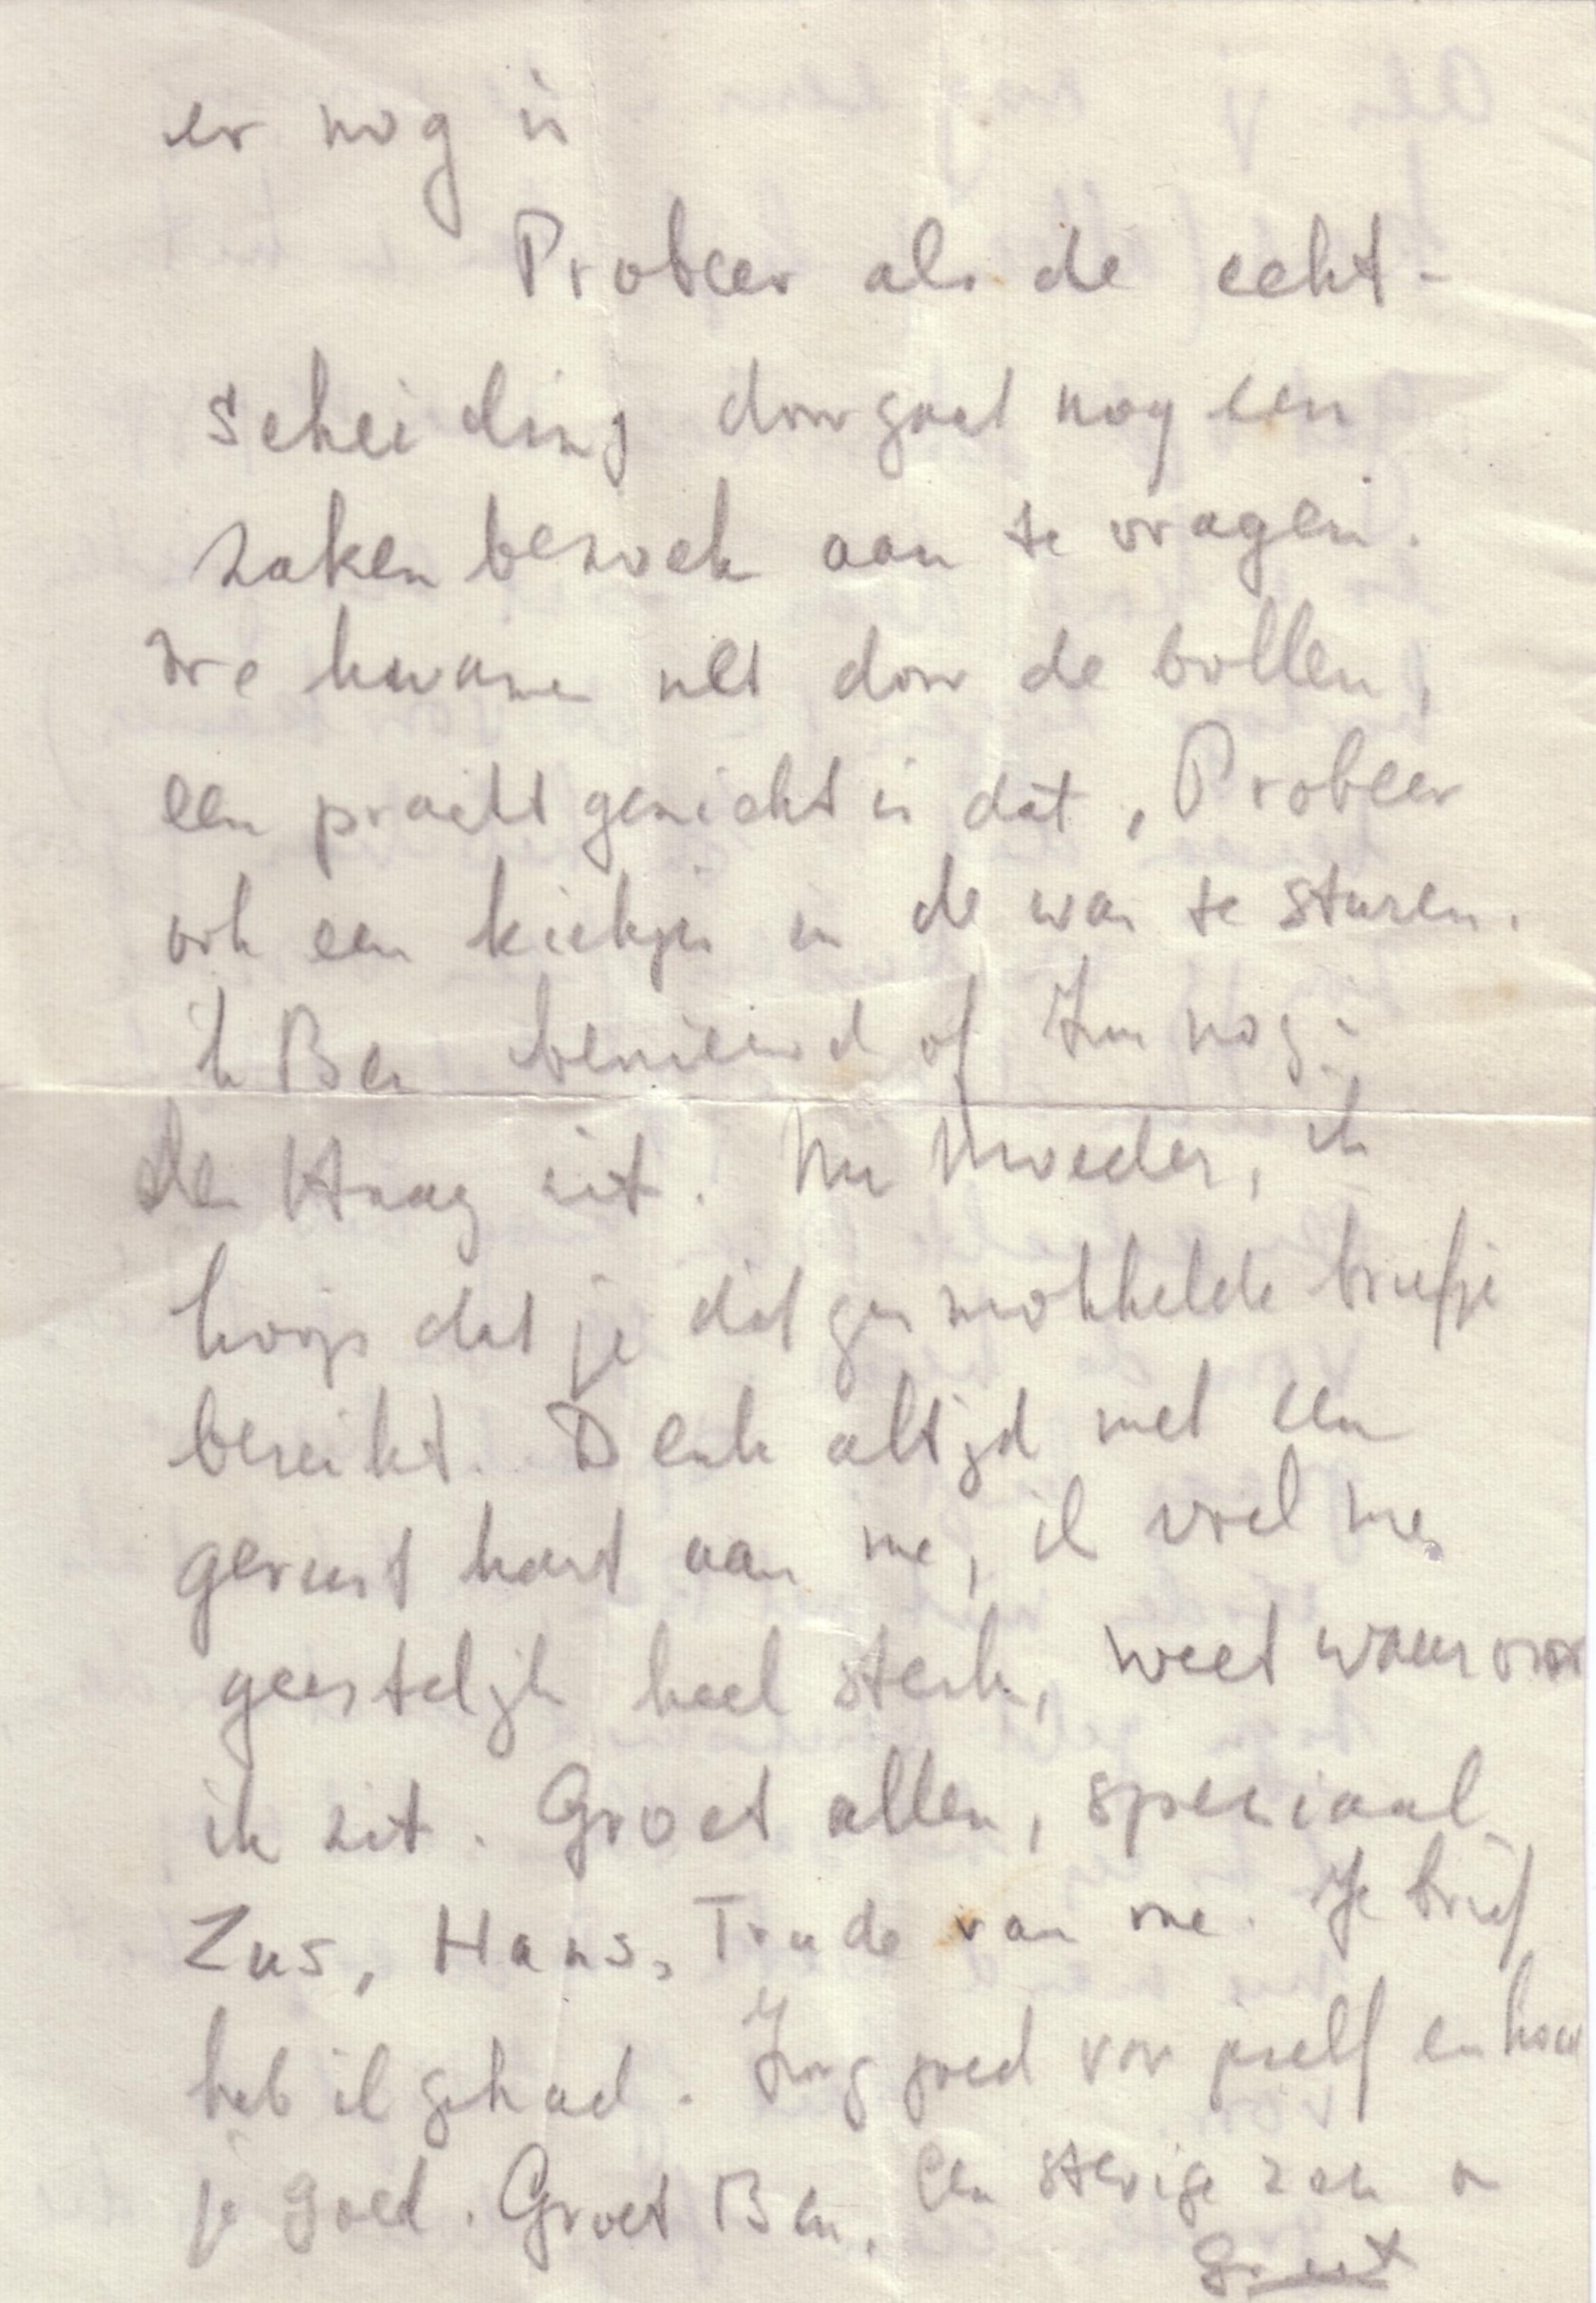 er nog is
Probeer als de echt-
scheiding doorgaat nog een
zakenbezoek aan te vragen.
We kwamen net door de bollen,
een pracht gezicht is dat, Probeer
ook een kiekje in de was te sturen.
ik Ben benieuwd of Jan nog in
den Haag zit. Nu Moeder, ik
hoop dat je dit gesmokkelde briefje
bereikt. Denk altijd met een
gerust hart aan me, ik voel me
geestelijk heel sterk, weet waarvoor
ik zit. Groet allen, speciaal
Zus, Hans, Trude van me. Je brief
heb ik gehad. Zorg goed voor jezelf en hou
je goed. Groet Ben. Een stevige zoen v
Guut